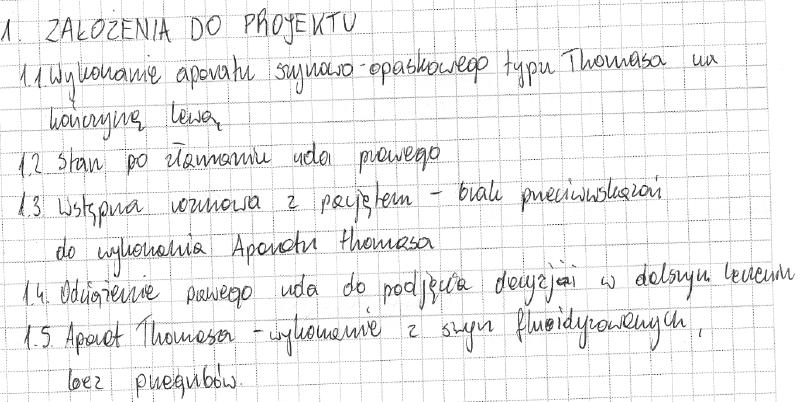 1. ZAŁOŻENIA DO PROJEKTU
1.1. Wykonanie aparatu szynowo-opaskowego typu Thomasa na
kończynę lewą
1.2 Stan po złamaniu uda prawego
1.3 Wstępna rozmowa z pacjętem - brak przeciwwskazań
do wykonania Aparatu thomasa
1.4. Odciążenie prawego uda do podjęcia decyzji w dalszym leczeniu
1.5. Aparat Thomasa - wykonanie z szyn fluoidyzowanych,
bez przegubów.